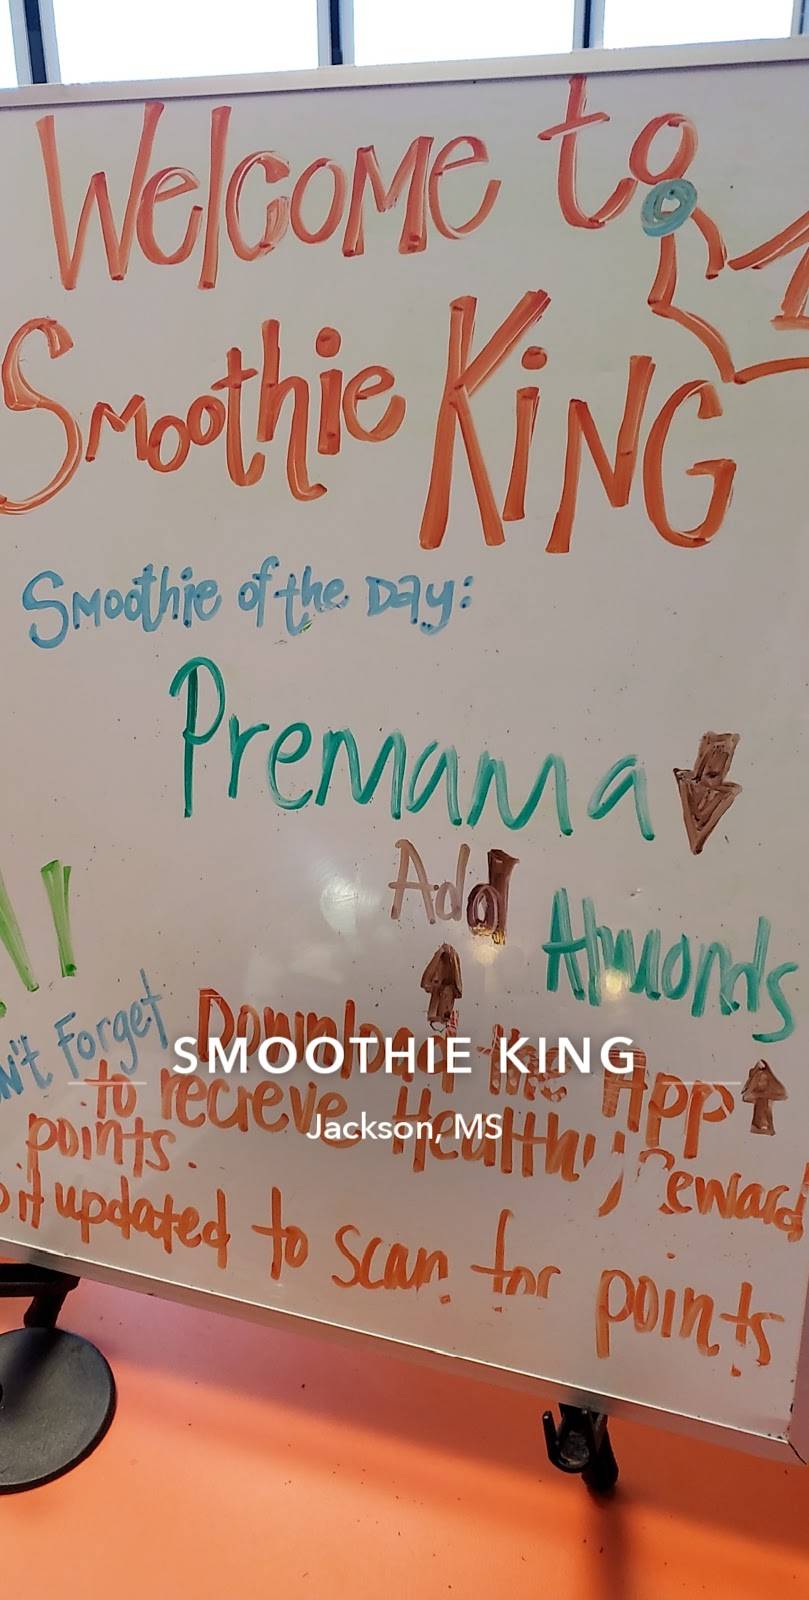 Welcome to
Smoothie King
Smoothie of the Day:
Premama
Add
Almonds
n't Forget Download the App
SMOOTHIE KING
to recieve Healthy Reward
Jackson, MS
points.
it updated to scan for points